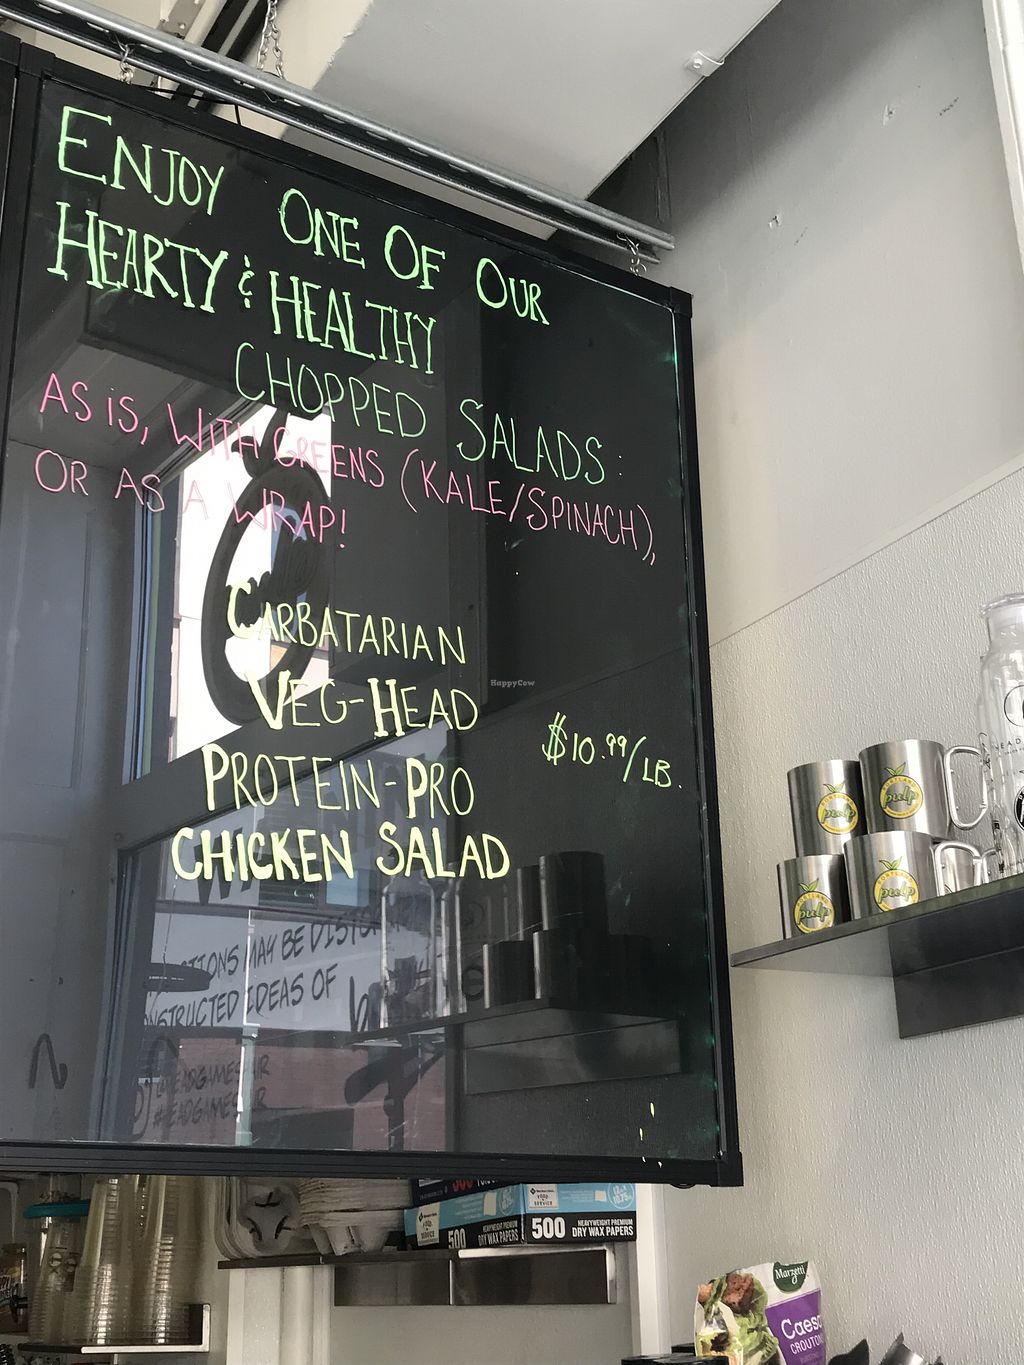 ENJOY ONE OF OUR
HEARTY & HEALTHY
CHOPPED SALADS:
AS IS, WITH GREENS (KALE/SPINACH),
OR AS A WRAP!
CARBATARIAN
VEG-HEAD
PROTEIN-PRO
CHICKEN SALAD
$10.99/LB.
HappyCow
MAY BE
IDEAS OF
pulp
pulp
pulp
pulp
500
500
HEAVYWEIGHT PREMIUM
DRY WAX PAPERS
Marzetti